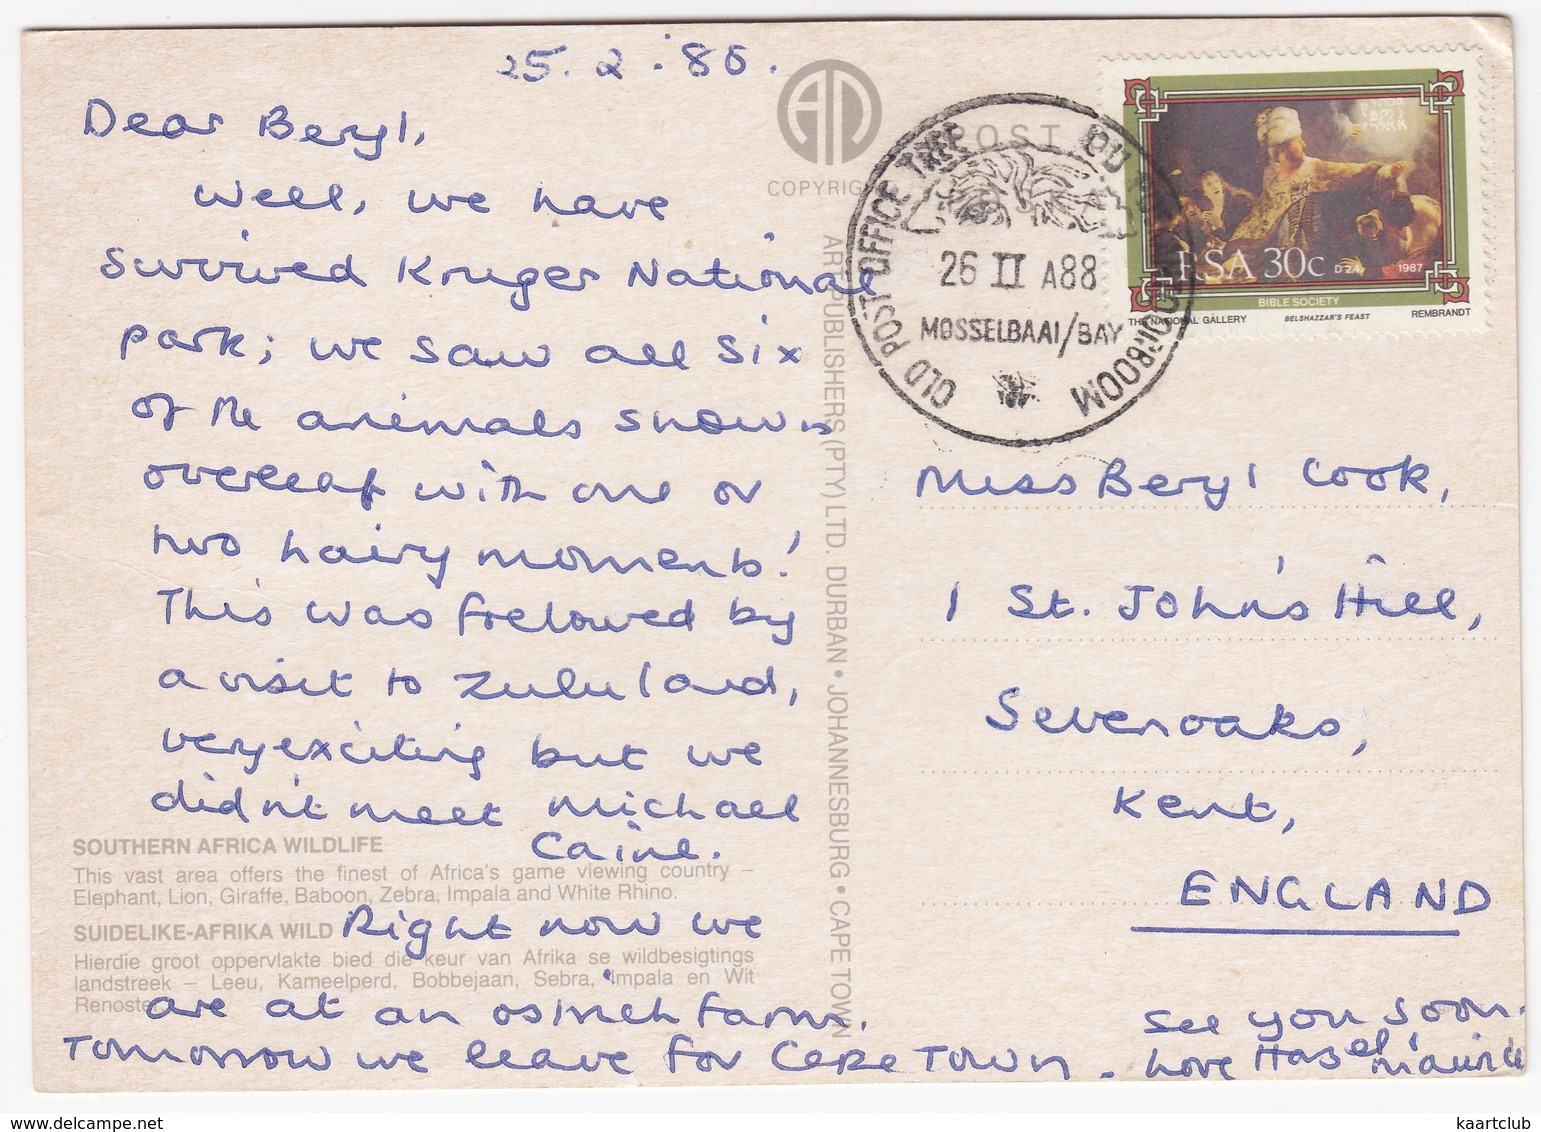 25.2.88.
Dear Beryl,
Well, we have
survived Kruger National
park; we saw all six
of the animals shown
overleaf with one or
two hairy moments!
This was followed by
a visit to Zululand,
very exciting but we
didn't meet Michael
Caine.
SOUTHERN AFRICA WILDLIFE
This vast area offers the finest of Africa's game viewing country –
Elephant, Lion, Giraffe, Baboon, Zebra, Impala and White Rhino.
SUIDELIKE-AFRIKA WILD
Right now we
Hierdie groot oppervlakte bied die keur van Afrika se wildbesigtings
landstreek – Leeu, Kameelperd, Bobbejaan, Sebra, Impala en Wit
Renoster.
are at an ostrich farm.
Tomorrow we leave for Cape Town.
See you soon.
Love Hazel, Maurice
COPYRIGHT
ART PUBLISHERS (PTY) LTD. DURBAN • JOHANNESBURG • CAPE TOWN
POST
OLD POST OFFICE TREE
OU POSKANTOORBOOM
26 II A88
MOSSELBAAI/BAY
RSA 30c
D 24
1987
BIBLE SOCIETY
THE NATIONAL GALLERY BELSHAZZAR'S FEAST REMBRANDT
Miss Beryl Cook,
1 St. John's Hill,
Sevenoaks,
Kent,
ENGLAND
www.delcampe.net
kaartclub